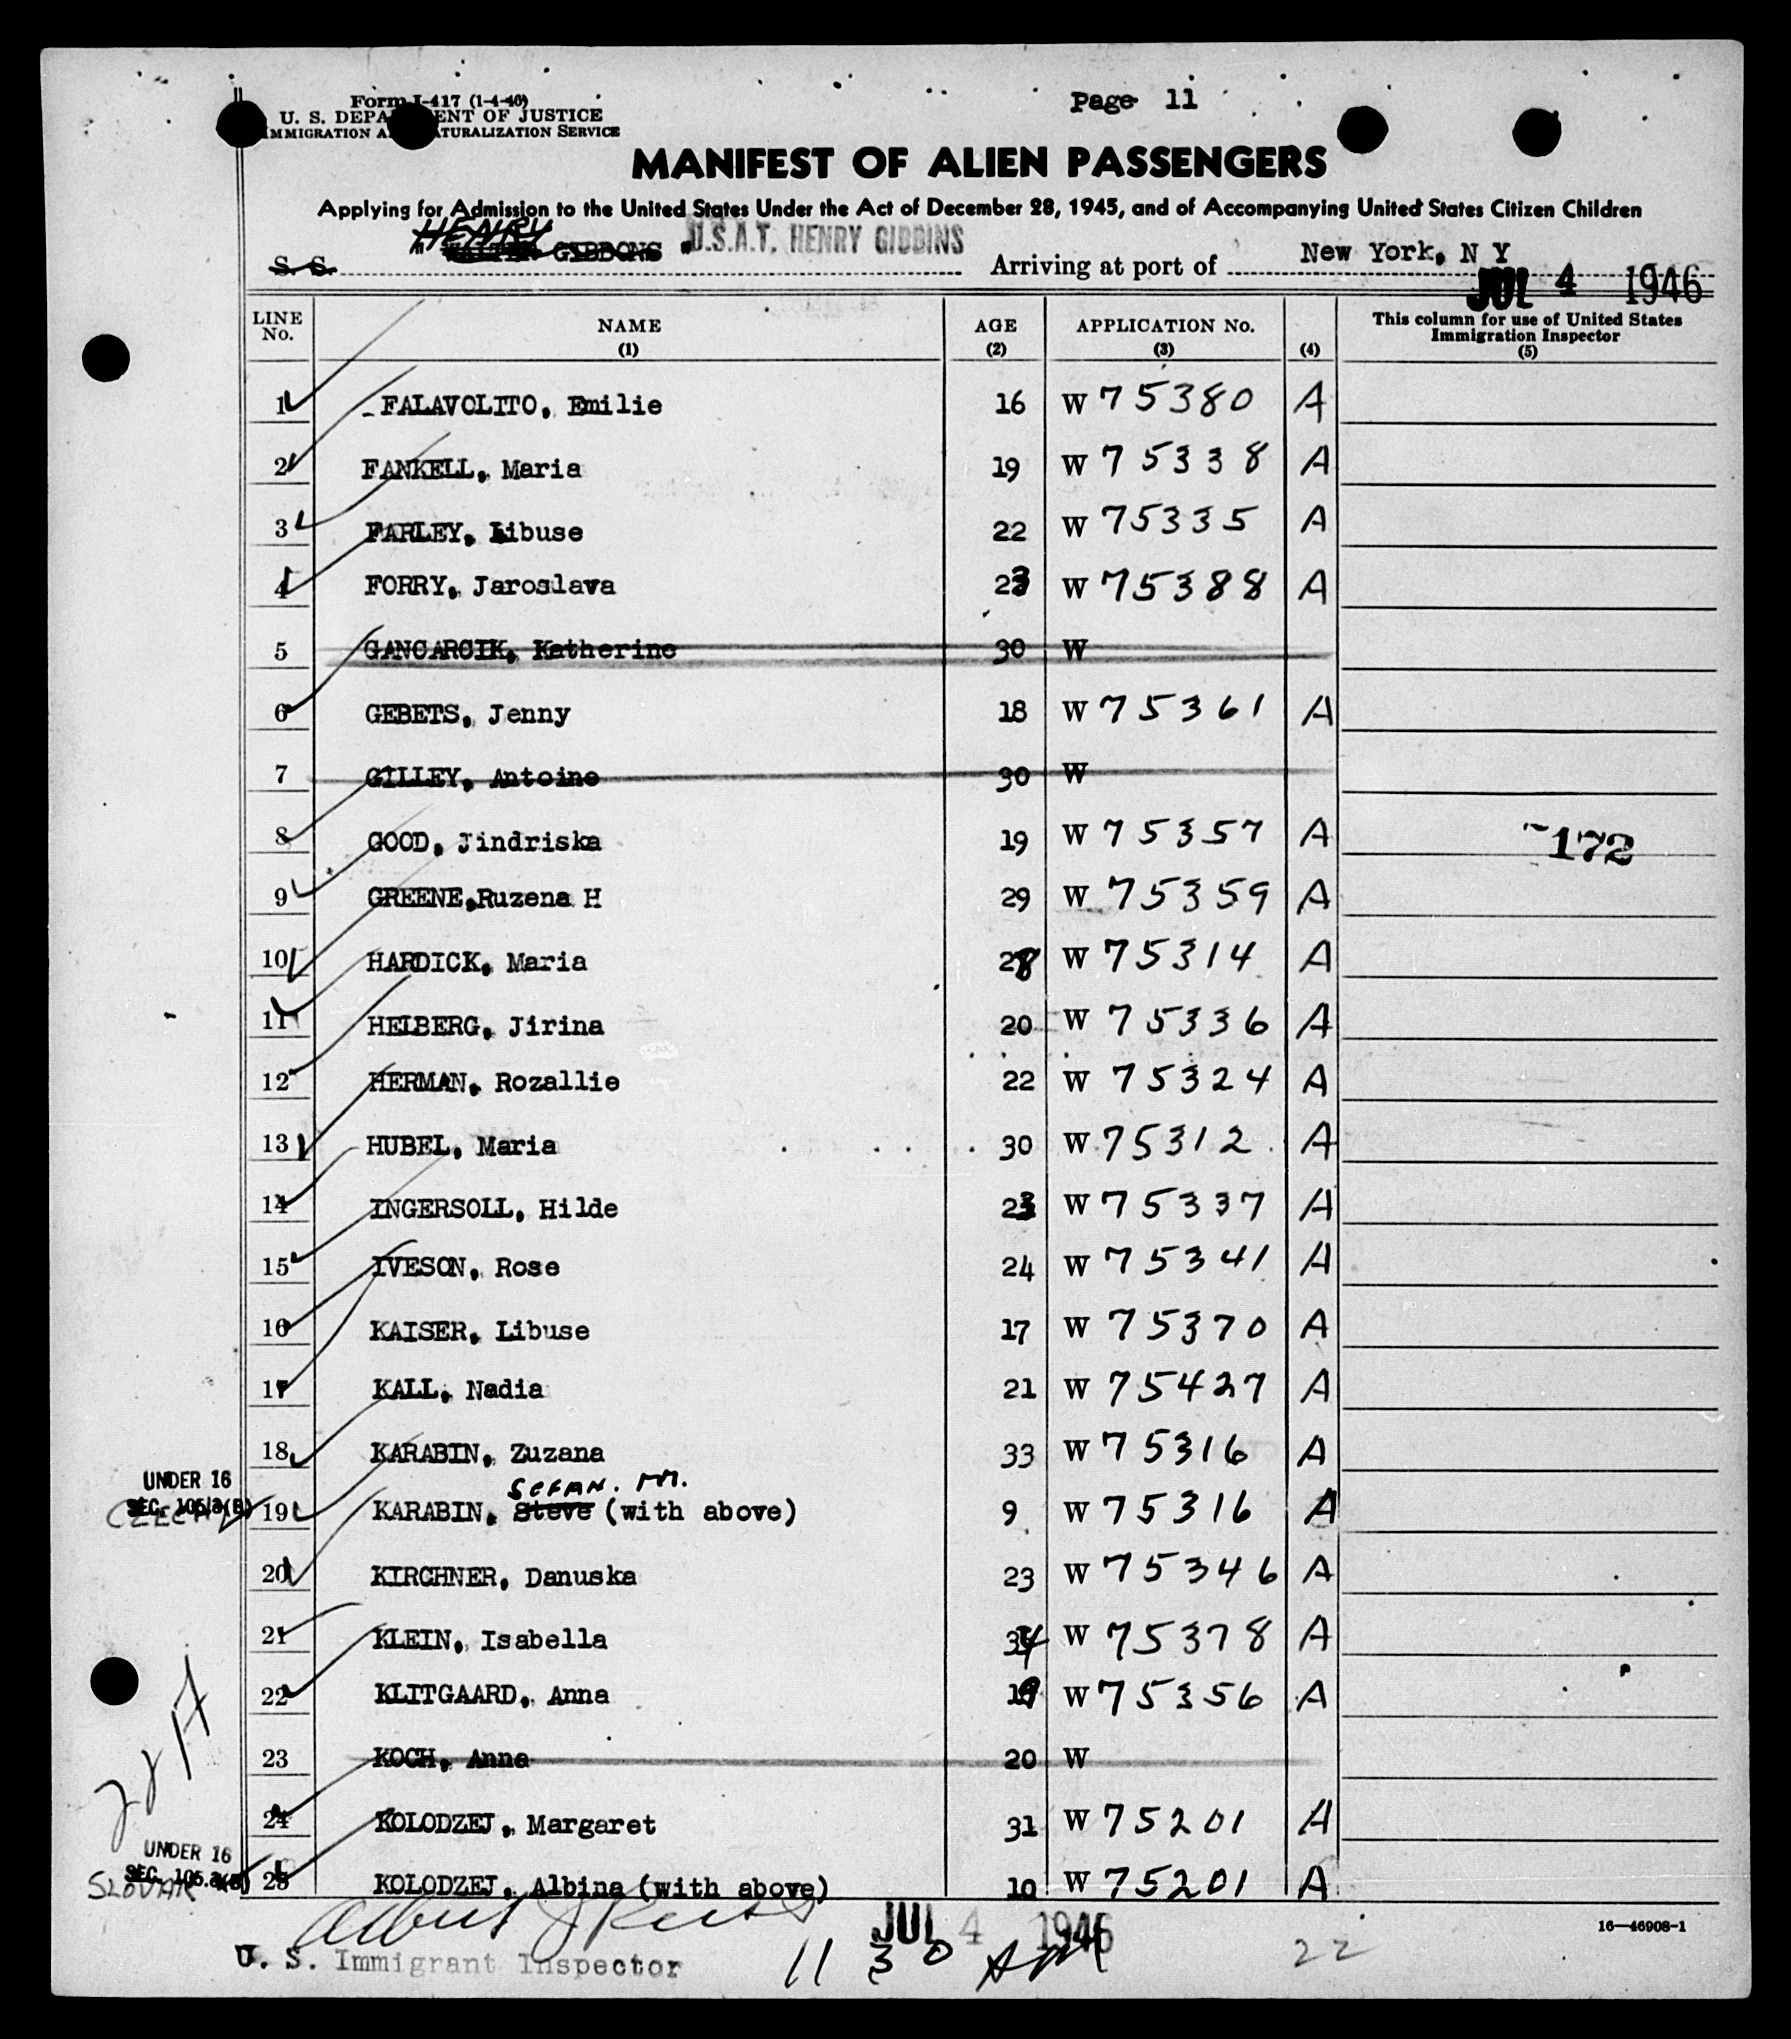 Page 11
Form I-417 (1-4-46)
U. S. DEPARTMENT OF JUSTICE
IMMIGRATION AND NATURALIZATION SERVICE
MANIFEST OF ALIEN PASSENGERS
Applying for Admission to the United States Under the Act of December 28, 1945, and of Accompanying United States Citizen Children
HENRY
S. S. WALTER GIBBONS U.S.A.T. HENRY GIBBINS Arriving at port of New York, N Y
JUL 4 1946
LINE No. NAME (1) AGE (2) APPLICATION No. (3) (4) This column for use of United States Immigration Inspector (5)
1 FALAVOLITO, Emilie 16 W 75380 A
2 FANKELL, Maria 19 W 75338 A
3 FARLEY, Libuse 22 W 75335 A
4 FORRY, Jaroslava 23 W 75388 A
5 GANCARCIK, Katherine 30 W
6 GEBETS, Jenny 18 W 75361 A
7 GILLEY, Antoine 30 W
8 GOOD, Jindriska 19 W 75357 A 172
9 GREENE, Ruzena H 29 W 75359 A
10 HARDICK, Maria 28 W 75314 A
11 HELBERG, Jirina 20 W 75336 A
12 HERMAN, Rozallie 22 W 75324 A
13 HUBEL, Maria 30 W 75312 A
14 INGERSOLL, Hilde 23 W 75337 A
15 IVESON, Rose 24 W 75341 A
16 KAISER, Libuse 17 W 75370 A
17 KALL, Nadia 21 W 75427 A
18 KARABIN, Zuzana 33 W 75316 A
UNDER 16
SEC. 105.3(B)
CZECH
STEFAN. M.
19 KARABIN, Steve (with above) 9 W 75316 A
20 KIRCHNER, Danuska 23 W 75346 A
21 KLEIN, Isabella 34 W 75378 A
22 KLITGAARD, Anna 19 W 75356 A
23 KOCH, Anna 20 W
22 A
24 KOLODZEJ, Margaret 31 W 75201 A
UNDER 16
SEC. 105.3(B)
SLOVAK
25 KOLODZEJ, Albina (with above) 10 W 75201 A
JUL 4 1946
16—46908-1
U. S. Immigrant Inspector
11 30 AM
22